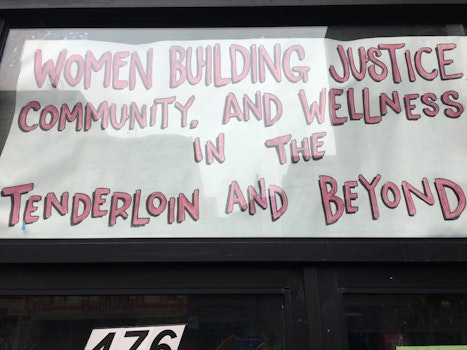 WOMEN BUILDING JUSTICE
COMMUNITY, AND WELLNESS
IN THE
TENDERLOIN AND BEYOND
476